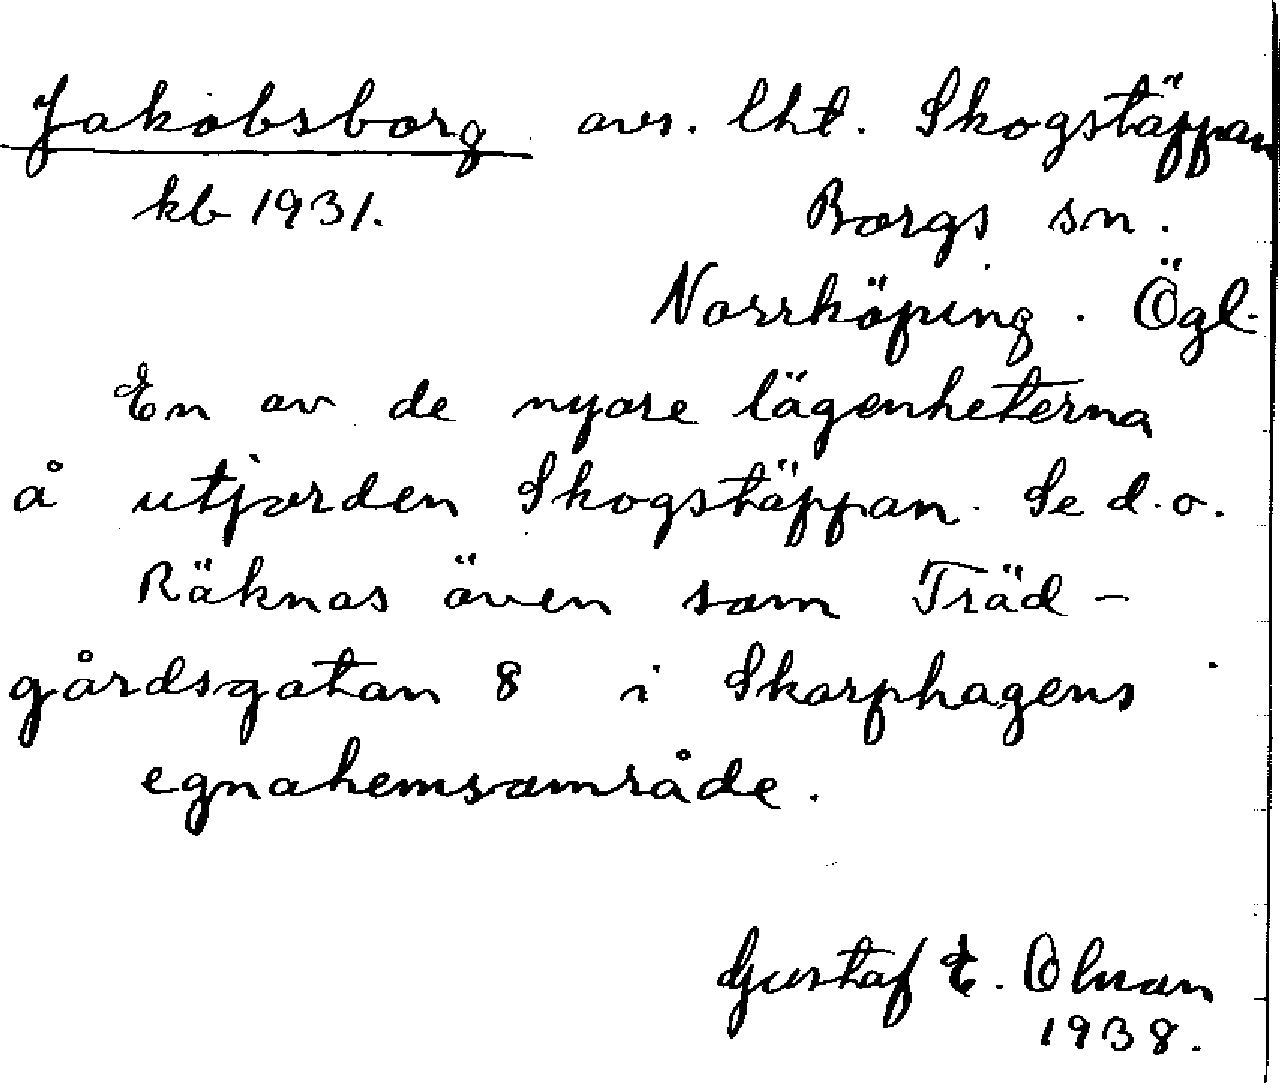 Jakobsborg avs. lht. Skogstäppan
kb 1931. Borgs sn.
Norrköping. Ögl.
En av de nyare lägenheterna
å utjorden Skogstäppan. Se d.o.
Räknas även som Träd-
gårdsgatan 8 i Skarphagens
egnahemsområde.
Gustaf E. Olman
1938.